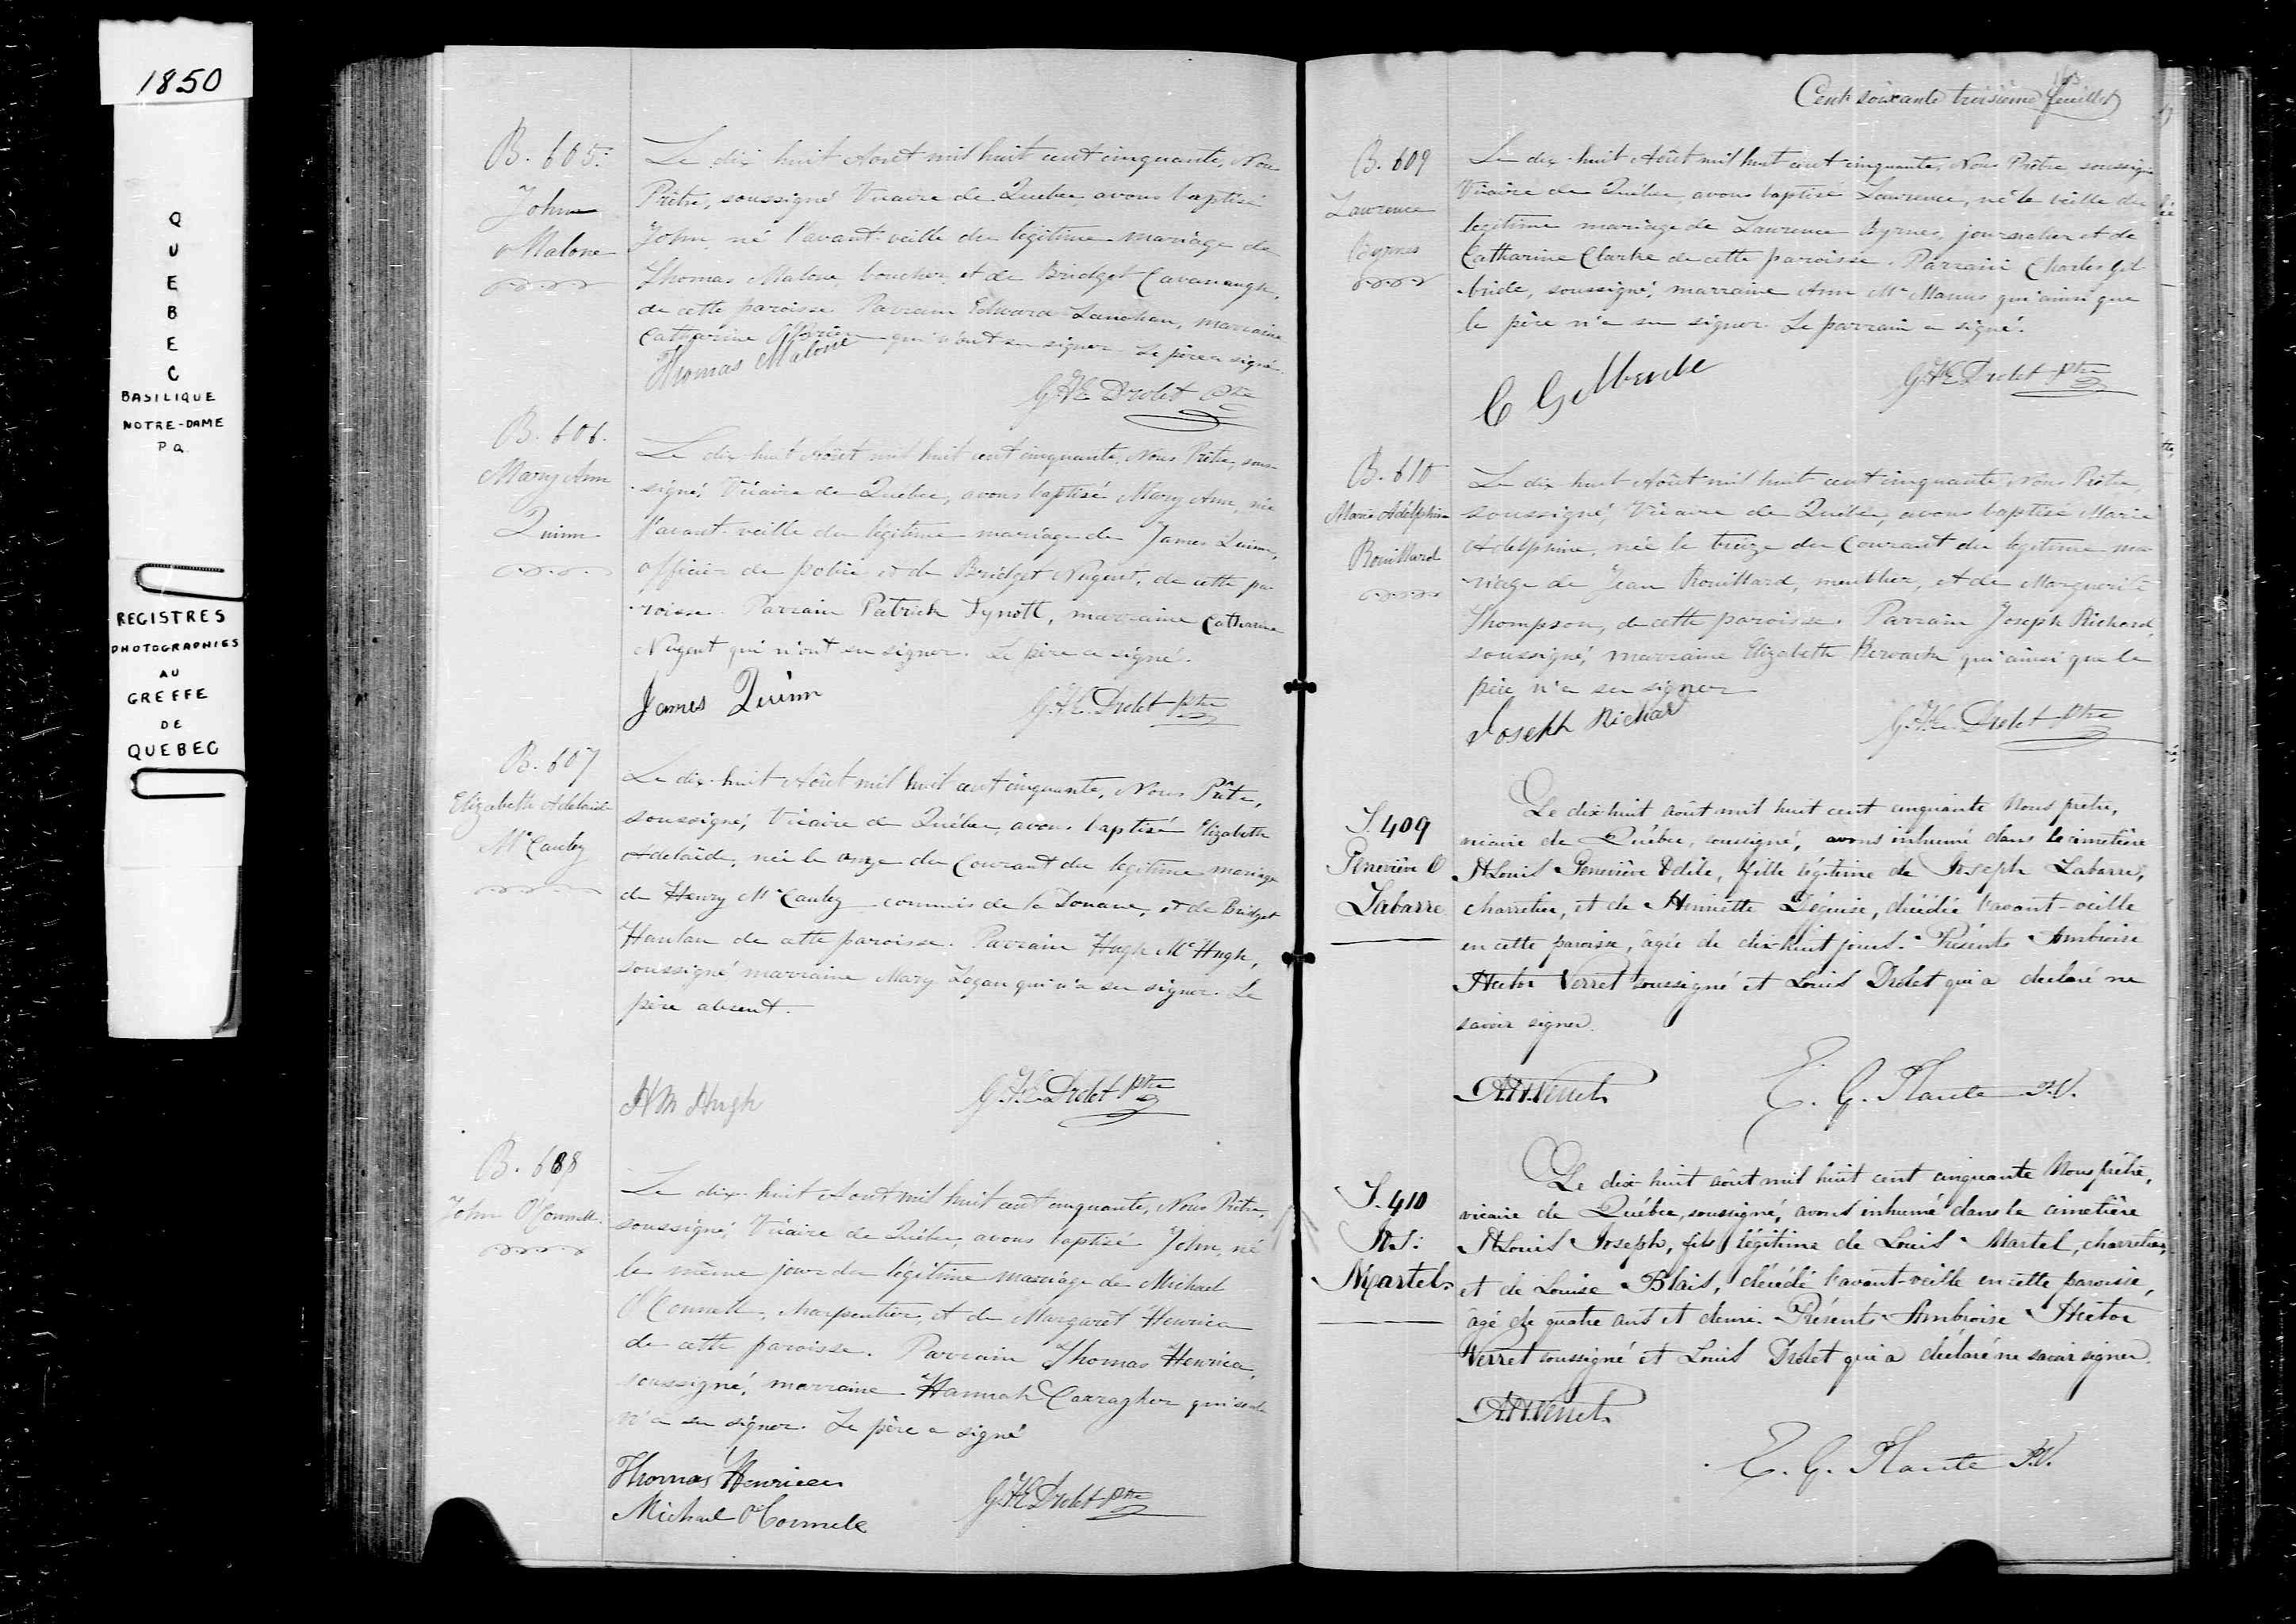 1850
QUEBEC
BASILIQUE
NOTRE-DAME
P.Q.
REGISTRES
PHOTOGRAPHIES
AU
GREFFE
DE
QUEBEC
B. 605.
John
Malone
Le dix huit Aout mil huit cent cinquante, Nous
Prêtre, soussigné Vicaire de Quebec avons baptisé
John, né l'avant-veille du légitime mariage de
Thomas Malone, boucher, et de Bridget Cavanaugh,
de cette paroisse. Parrain Edward Lanahan, marraine
Catharine O'Brien qui n'ont su signer. Le père a signé.
Thomas Malone
G. H. E. Drolet Ptre
B. 606.
Mary Ann
Quinn
Le dix-huit Août mil huit cent cinquante, Nous Prêtre, sous-
signé, Vicaire de Québec, avons baptisé Mary Ann, née
l'avant-veille du légitime mariage de James Quinn,
officier de police et de Bridget Nugent, de cette pa-
roisse. Parrain Patrick Synott, marraine Catharine
Nugent qui n'ont su signer. Le père a signé.
James Quinn
G. H. E. Drolet Ptre
B. 607
Elizabeth Adelaide
McCauley
Le dix-huit Août mil huit cent cinquante, Nous Prêtre,
soussigné, Vicaire de Québec, avons baptisé Elizabeth
Adelaïde, née le onze du Courant du légitime mariage
de Henry McCauley commis de la Douane, et de Bridget
Hanlan de cette paroisse. Parrain Hugh McHugh,
soussigné marraine Mary Logan qui n'a su signer. Le
père absent.
H Mc Hugh
G. H. E. Drolet Ptre
B. 608
John O'Connell
Le dix-huit Aout mil huit cent cinquante, Nous Prêtre,
soussigné, Vicaire de Québec, avons baptisé John, né
le même jour du légitime mariage de Michael
O'Connell, charpentier, et de Margaret Henrica
de cette paroisse. Parrain Thomas Henrica,
soussigné, marraine Hannah Carragher qui seule
n'a su signer. Le père a signé
Thomas
Michael O'Connell
G. H. E. Drolet Ptre
163
Cent soixante troisième feuillet
B. 609
Lawrence
Byrnes
Le dix-huit Août mil huit cent cinquante, Nous Prêtre soussigné
Vicaire de Québec, avons baptisé Lawrence, né la veille du
légitime mariage de Lawrence Byrnes, journalier et de
Catharine Clarke de cette paroisse. Parrain Charles Gil-
bride, soussigné, marraine Ann McManus qui ainsi que
le père n'a su signer. Le parrain a signé.
G. H. E. Drolet Ptre
B. 610
Marie Adelphine
Rouillard
Le dix-huit Août mil huit cent cinquante, Nous Prêtre,
soussigné, Vicaire de Québec, avons baptisé Marie
Adelphine, née le treize du Courant du légitime ma-
riage de Jean Rouillard, meublier, et de Marguerite
Thompson, de cette paroisse. Parrain Joseph Richard,
soussigné, marraine Elizabeth qui ainsi que le
père n'a su signer
Joseph Richard
G. H. E. Drolet Ptre
S. 409
Geneviève O
Labarre
Le dix-huit août mil huit cent cinquante Nous prêtre,
vicaire de Québec, soussigné, avons inhumé dans le cimetière
St Louis Geneviève Odile, fille légitime de Joseph Labarre,
charretier, et de Henriette Déguise, décédée l'avant-veille
en cette paroisse, âgée de dix-huit jours. Présents Ambroise
Hector Verret soussigné et Louis Drolet qui a déclaré ne
savoir signer.
A. H. Verret
E. G. Plante P.V.
S. 410
Martel
Le dix-huit août mil huit cent cinquante Nous prêtre,
vicaire de Québec, soussigné, avons inhumé dans le cimetière
St Louis Joseph, fils légitime de Louis Martel, charretier,
et de Louise Blais, décédé l'avant-veille en cette paroisse,
âgé de quatre ans et demi. Présents Ambroise Hector
Verret soussigné et Louis Drolet qui a déclaré ne savoir signer.
A. H. Verret
E. G. Plante P.V.